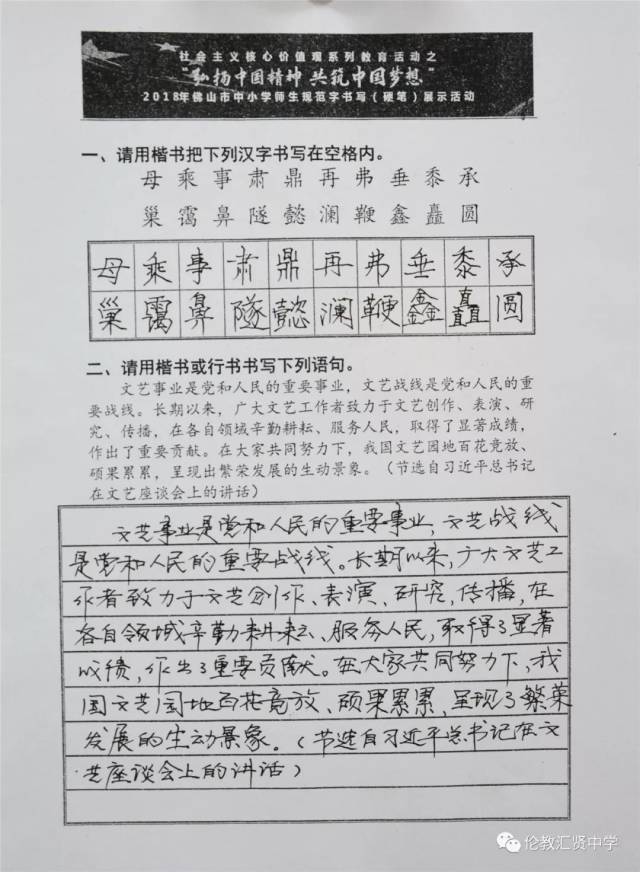 社会主义核心价值观系列教育活动之
“弘扬中国精神 共筑中国梦想”
2018年佛山市中小学师生规范字书写(硬笔)展示活动
一、请用楷书把下列汉字书写在空格内。
母 乘 事 肃 鼎 再 弗 垂 黍 承
巢 霭 鼻 隧 懿 澜 鞭 鑫 矗 圆
母 乘 事 肃 鼎 再 弗 垂 黍 承
巢 霭 鼻 隧 懿 澜 鞭 鑫 矗 圆
二、请用楷书或行书书写下列语句。
文艺事业是党和人民的重要事业,文艺战线是党和人民的重
要战线。长期以来,广大文艺工作者致力于文艺创作、表演、研
究、传播,在各自领域辛勤耕耘、服务人民,取得了显著成绩,
作出了重要贡献。在大家共同努力下,我国文艺园地百花竞放、
硕果累累,呈现出繁荣发展的生动景象。(节选自习近平总书记
在文艺座谈会上的讲话)
文艺事业是党和人民的重要事业,文艺战线
是党和人民的重要战线。长期以来,广大文艺工
作者致力于文艺创作、表演、研究,传播,在
各自领域辛勤耕耘、服务人民,取得了显著
成绩,作出了重要贡献。在大家共同努力下,我
国文艺园地百花竞放、硕果累累,呈现了繁荣
发展的生动景象。(节选自习近平总书记在文
艺座谈会上的讲话)
伦教汇贤中学